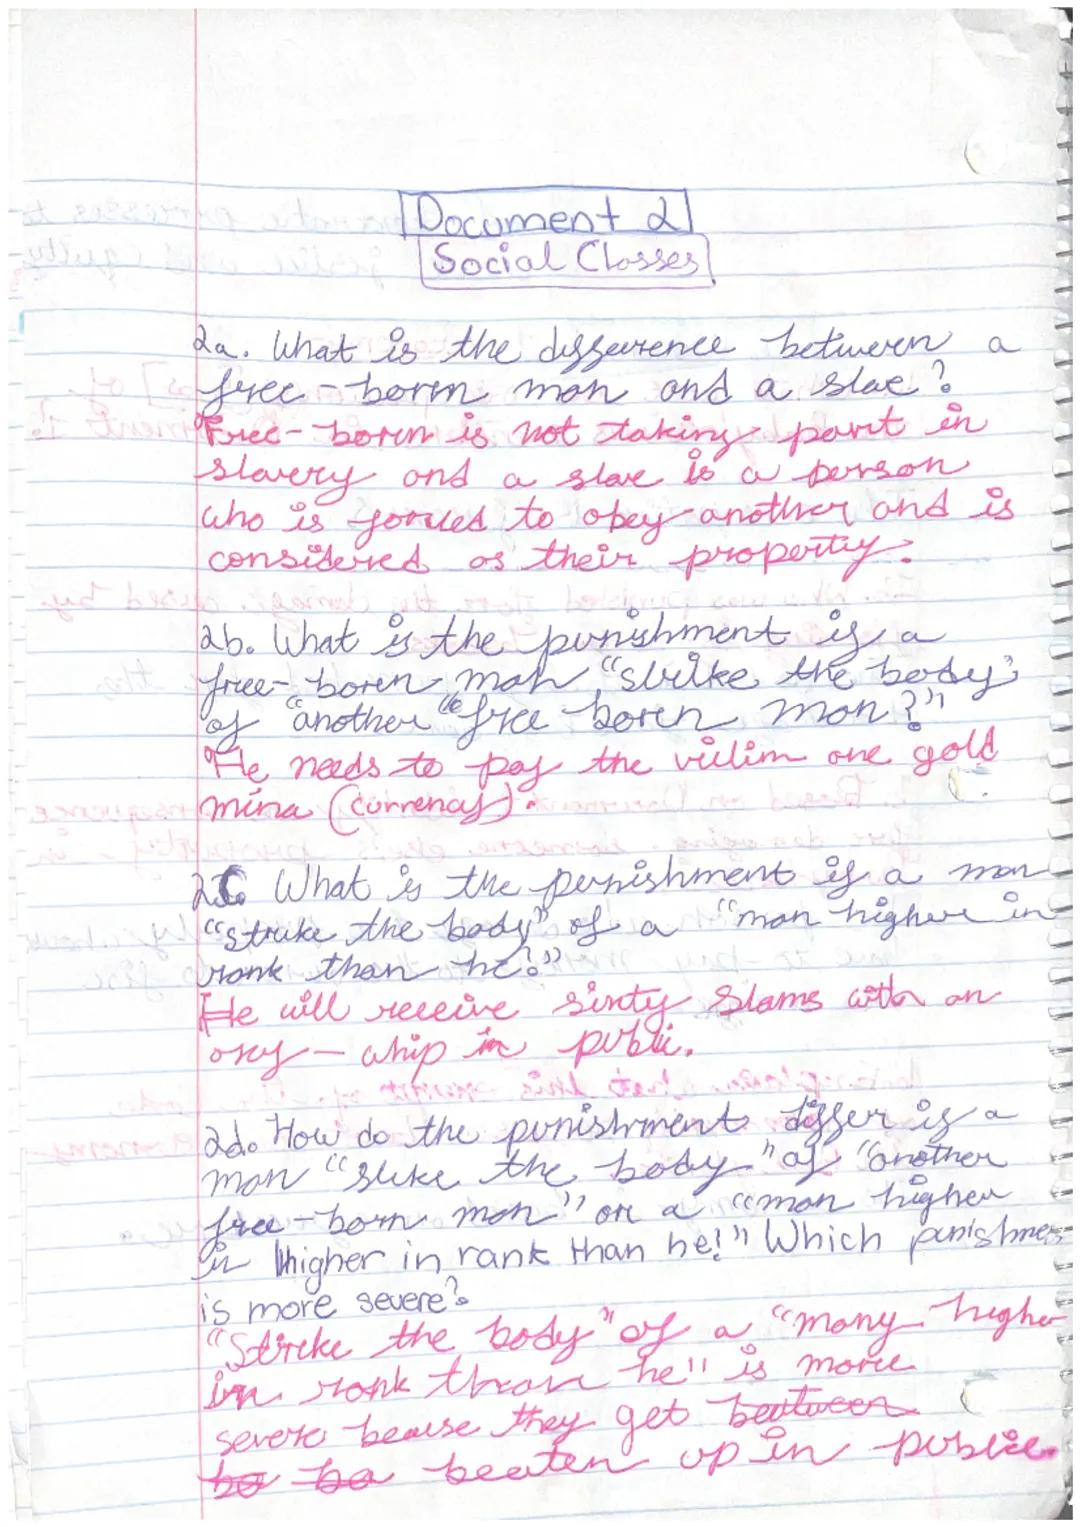 Document 2
Social Classes
2a. What is the difference between a
free-born man and a slae?
Free-born is not taking part in
slavery and a slave is a person
who is forced to obey another and is
considered as their property.
2b. What is the punishment if a
free-born man "strike the body"
of "another "free-born man?"
He needs to pay the victim one gold
mina (currency).
2C What is the punishment if a man
"strike the body" of a "man higher in
rank than he?"
He will receive sixty slams with an
oxy-whip in public.
2d. How do the punishment differ if a
man "strike the body" of "another
free-born man" or a "man higher
in higher in rank than he!" Which punishmen
is more severe?
"Strike the body" of a "many higher
in rank than he" is more
severe beause they get beatween
be be beaten up in public.